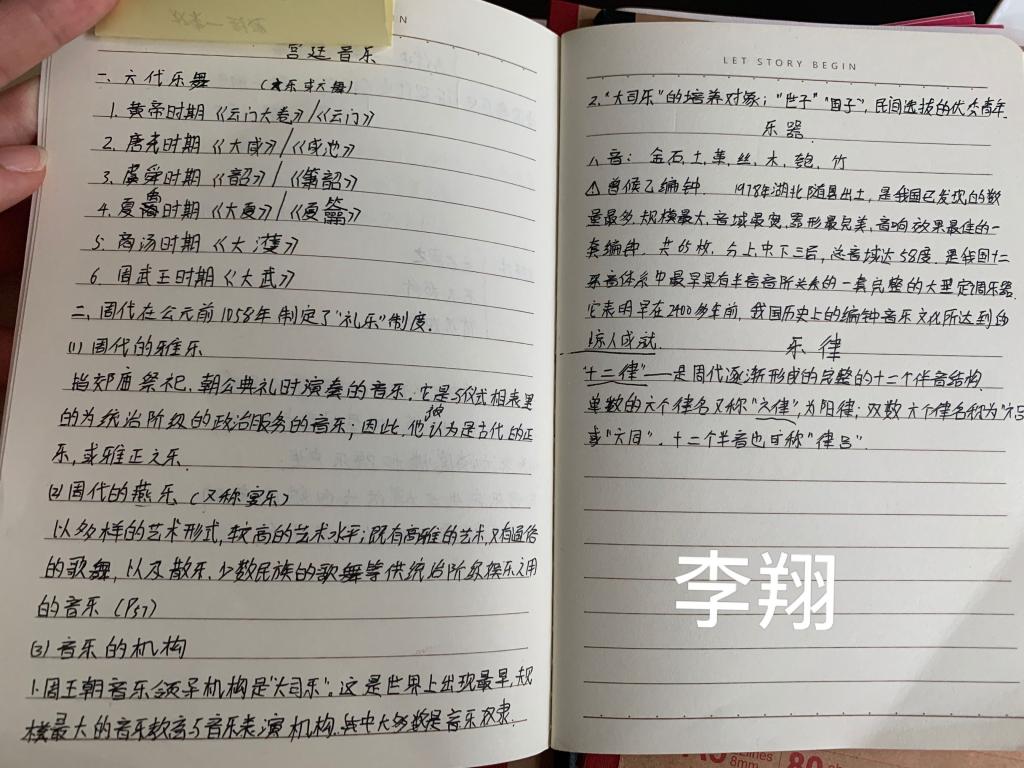 宫廷音乐
一、六代乐舞
1. 黄帝时期《云门大卷》/《云门》
2. 唐尧时期《大咸》/《咸池》
3. 虞舜时期《韶》/《箫韶》
4. 夏禹时期《大夏》/《夏籥》
5. 商汤时期《大濩》
6. 周武王时期《大武》
二、周代在公元前1058年制定了"礼乐"制度.
(1) 周代的雅乐
指郊庙祭祀、朝会典礼时演奏的音乐.它是与仪式相表里
的为统治阶级的政治服务的音乐;因此,他被认为是古代的正
乐,或雅正之乐.
(2) 周代的燕乐(又称宴乐)
以多样的艺术形式,较高的艺术水平;既有高雅的艺术,又有通俗
的歌舞,以及散乐、少数民族的歌舞等供统治阶级娱乐之用
的音乐(P57)
(3) 音乐的机构
1.周王朝音乐领导机构是"大司乐".这是世界上出现最早,规
模最大的音乐教育与音乐表演机构.其中大多数是音乐奴隶.
LET STORY BEGIN
2."大司乐"的培养对象:"世子""国子",民间选拔的优秀青年.
乐器
八音: 金、石、土、革、丝、木、匏、竹
△ 曾候乙编钟. 1978年湖北随县出土,是我国已发现的数
量最多、规模最大、音域最宽、器形最完美、音响效果最佳的一
套编钟. 共65枚,分上中下三层,总音域达58度.是我国十二
乐音体系中最早具有半音音阶关系的一套完整的大型定调乐器.
它表明早在2400多年前,我国历史上的编钟音乐文化所达到的
惊人成就.
乐律
"十二律"——是周代逐渐形成的完整的十二个半音结构.
单数的六个律名又称"六律",为阳律;双数六个律名称为"六吕
或"六同".十二个半音也可称"律吕".
李翔